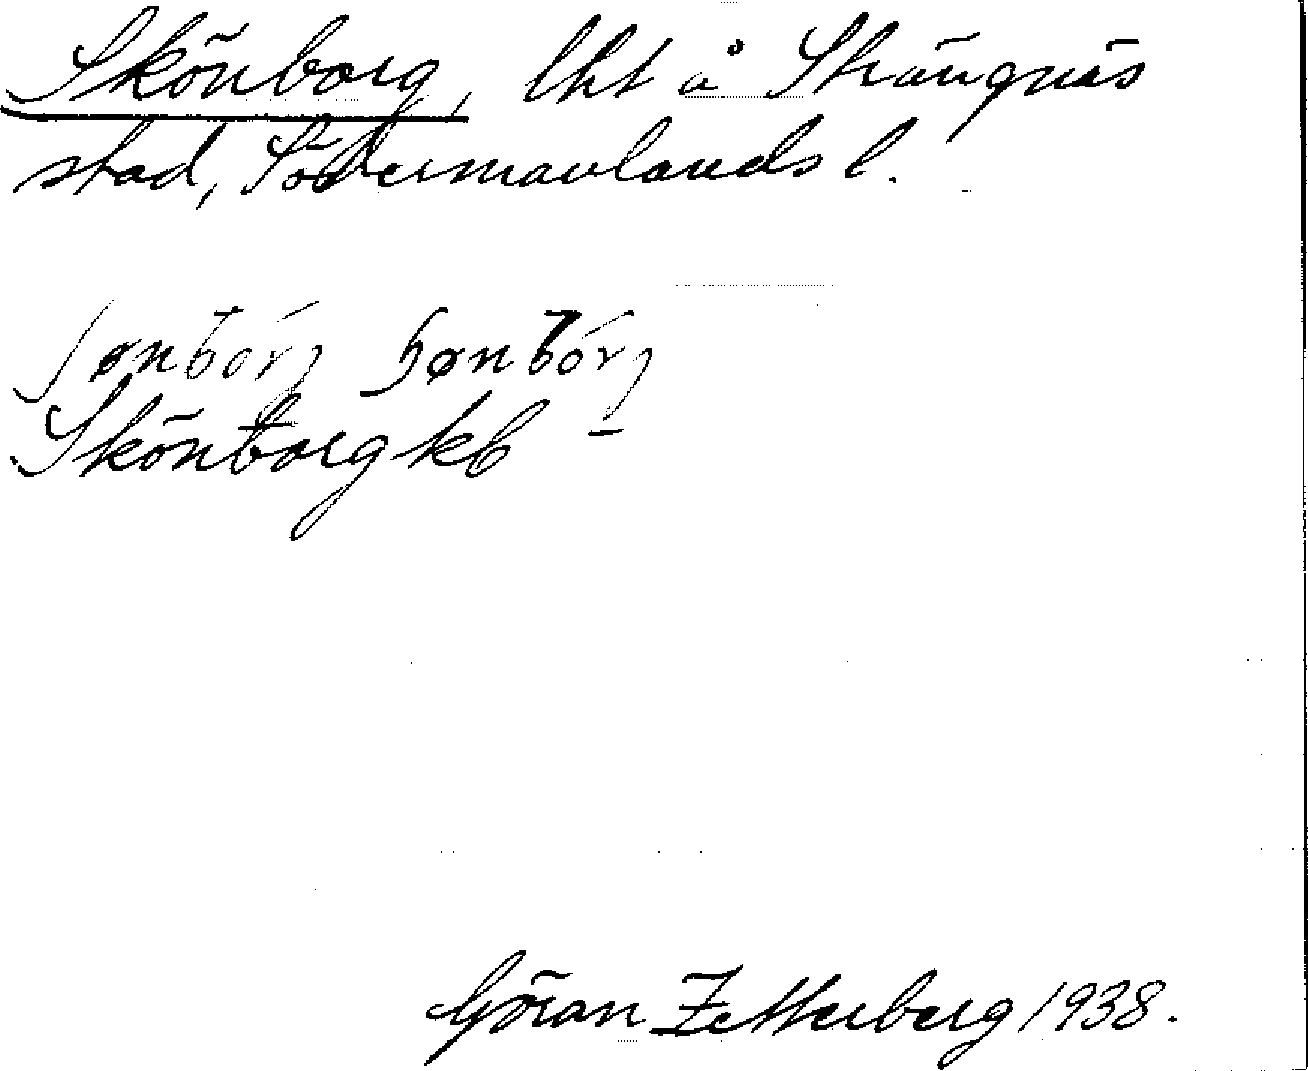 Skönborg, lht å Strängnäs
stad, Södermanlands l.
Skönborg kb
Göran Zetterberg 1938.